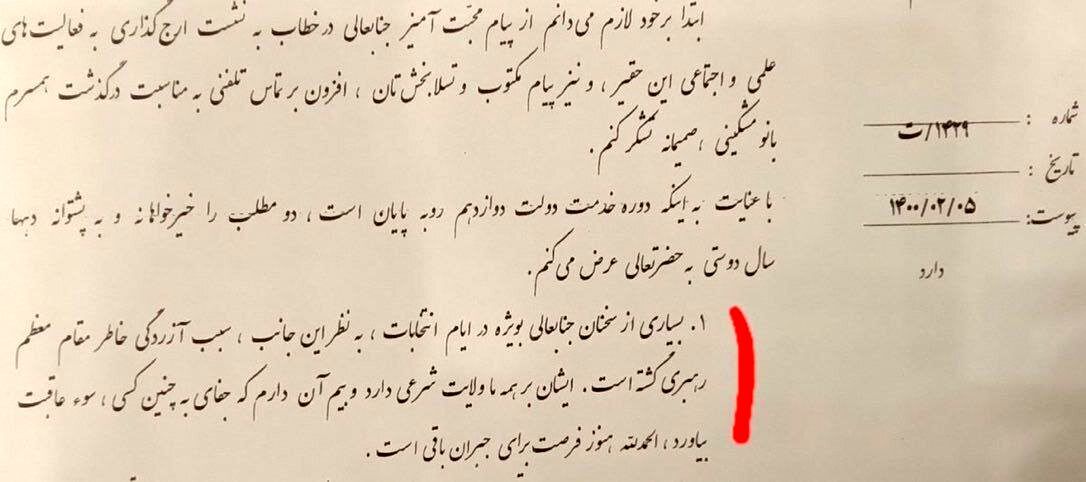 ابتدا برخود لازم می‌دانم از پیام محبّت آمیز جنابعالی درخطاب به نشست ارج‌گذاری به فعالیت‌های
علمی و اجتماعی این حقیر ، و نیز پیام مکتوب و تسلا‌بخش‌تان ، افزون بر تماس تلفنی به مناسبت درگذشت همسرم
بانو مشکینی ، صمیمانه تشکر کنم .
با عنایت به اینکه دوره خدمت دولت دوازدهم روبه پایان است ، دو مطلب را خیرخواهانه و به پشتوانه دهها
سال دوستی به حضرتعالی عرض می‌کنم .
۱. بسیاری از سخنان جنابعالی بویژه در ایام انتخابات ، به نظر این جانب ، سبب آزردگی خاطر مقام معظم
رهبری گشته است . ایشان بر همه ما ولایت شرعی دارد و بیم آن دارم که جفای به چنین کسی ، سوء عاقبت
بیاورد ، الحمدلله هنوز فرصت برای جبران باقی است .
شماره :
۱۴۲۹/ت
تاریخ :
۱۴۰۰/۰۲/۰۵
پیوست:
دارد